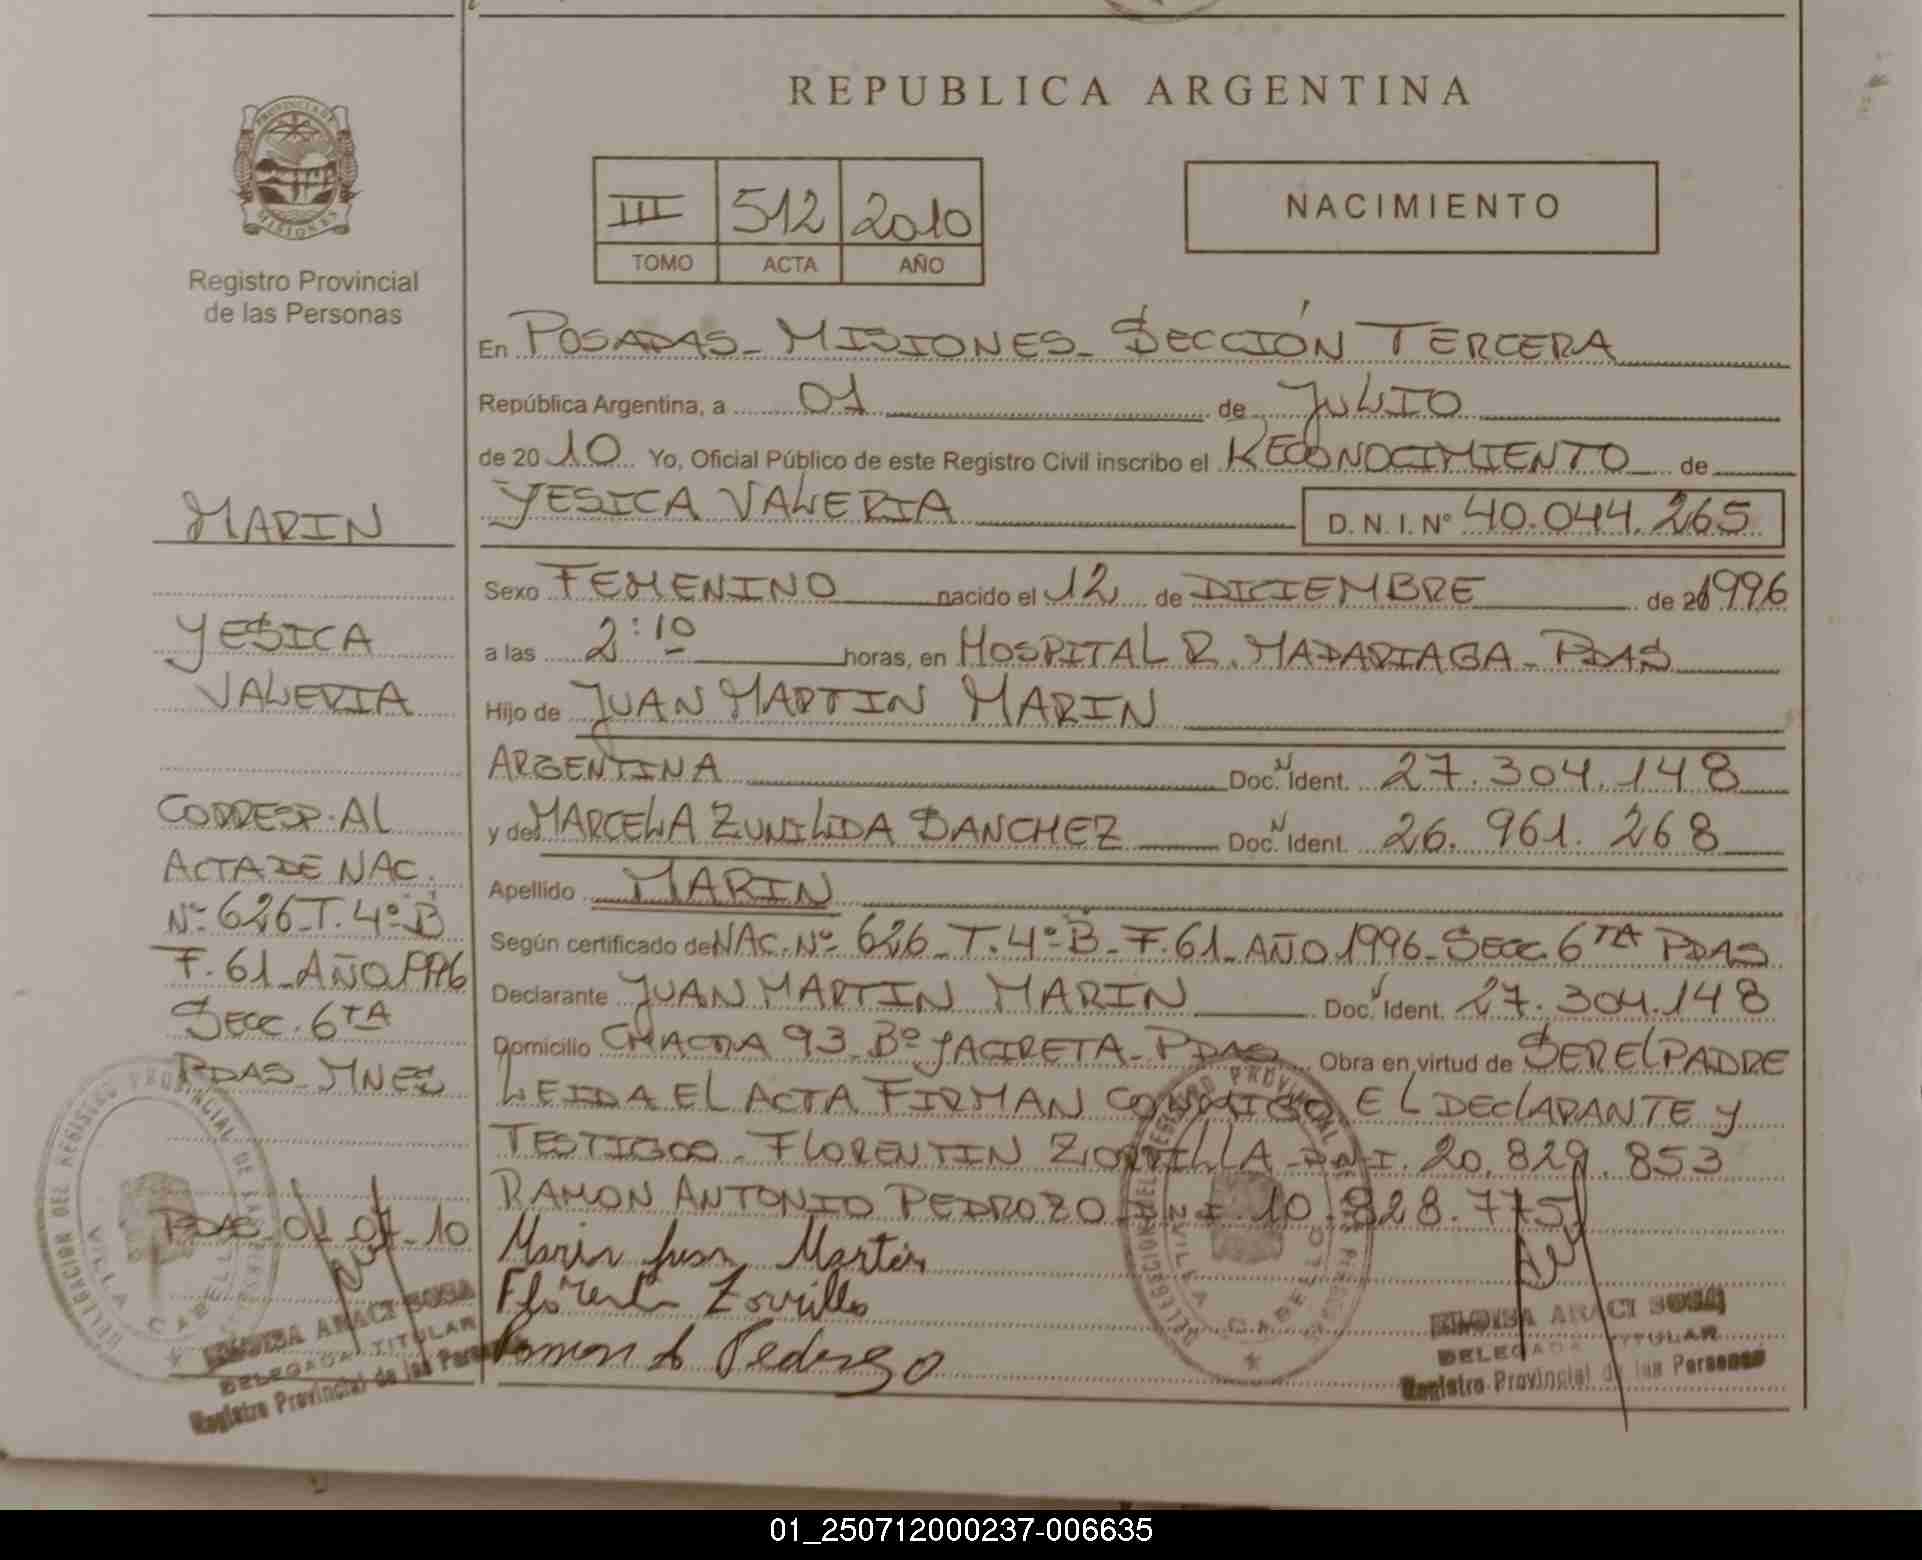 REPUBLICA ARGENTINA
PROVINCIA DE
MISIONES
Registro Provincial
de las Personas
III 512 2010
TOMO ACTA AÑO
NACIMIENTO
En POSADAS - MISIONES - SECCIÓN TERCERA
República Argentina, a 01 de JULIO
de 2010 Yo, Oficial Público de este Registro Civil inscribo el RECONOCIMIENTO de
YESICA VALERIA D. N. I. Nº 40.044.265
Sexo FEMENINO nacido el 12 de DICIEMBRE de 1996
a las 2:10 horas, en HOSPITAL R. MADARIAGA - PDAS
Hijo de JUAN MARTIN MARIN
ARGENTINA Doc. Ident. 27.304.148
y de MARCELA ZUNILDA SANCHEZ Doc. Ident. 26.961.268
Apellido MARIN
Según certificado de NAC. Nº 626 - T. 4º B - F. 61 - AÑO 1996 - SECC. 6TA PDAS
Declarante JUAN MARTIN MARIN Doc. Ident. 27.304.148
Domicilio CHACRA 93 Bº YACIRETA - PDAS Obra en virtud de SER EL PADRE
LEIDA EL ACTA FIRMAN CONMIGO EL DECLARANTE Y
TESTIGOS - FLORENTIN ZORRILLA - DNI. 20.829.853
RAMON ANTONIO PEDROZO 10.828.775
Marin Juan Martin
Florentin Zorrilla
Ramon A Pedrozo
MARIN
YESICA
VALERIA
CORRESP. AL
ACTA DE NAC.
Nº 626 T. 4º B
F. 61 - AÑO 1996
SECC. 6TA
PDAS - MNES
PDAS - 01-07-10
DELEGACION DEL REGISTRO PROVINCIAL DE LAS PERSONAS
VILLA CABELLO
ELOISA ARACI SOSA
DELEGADA TITULAR
Registro Provincial de las Personas
DELEGACION DEL REGISTRO PROVINCIAL DE LAS PERSONAS
VILLA CABELLO
ELOISA ARACI SOSA
DELEGADA TITULAR
Registro Provincial de las Personas
01_250712000237-006635